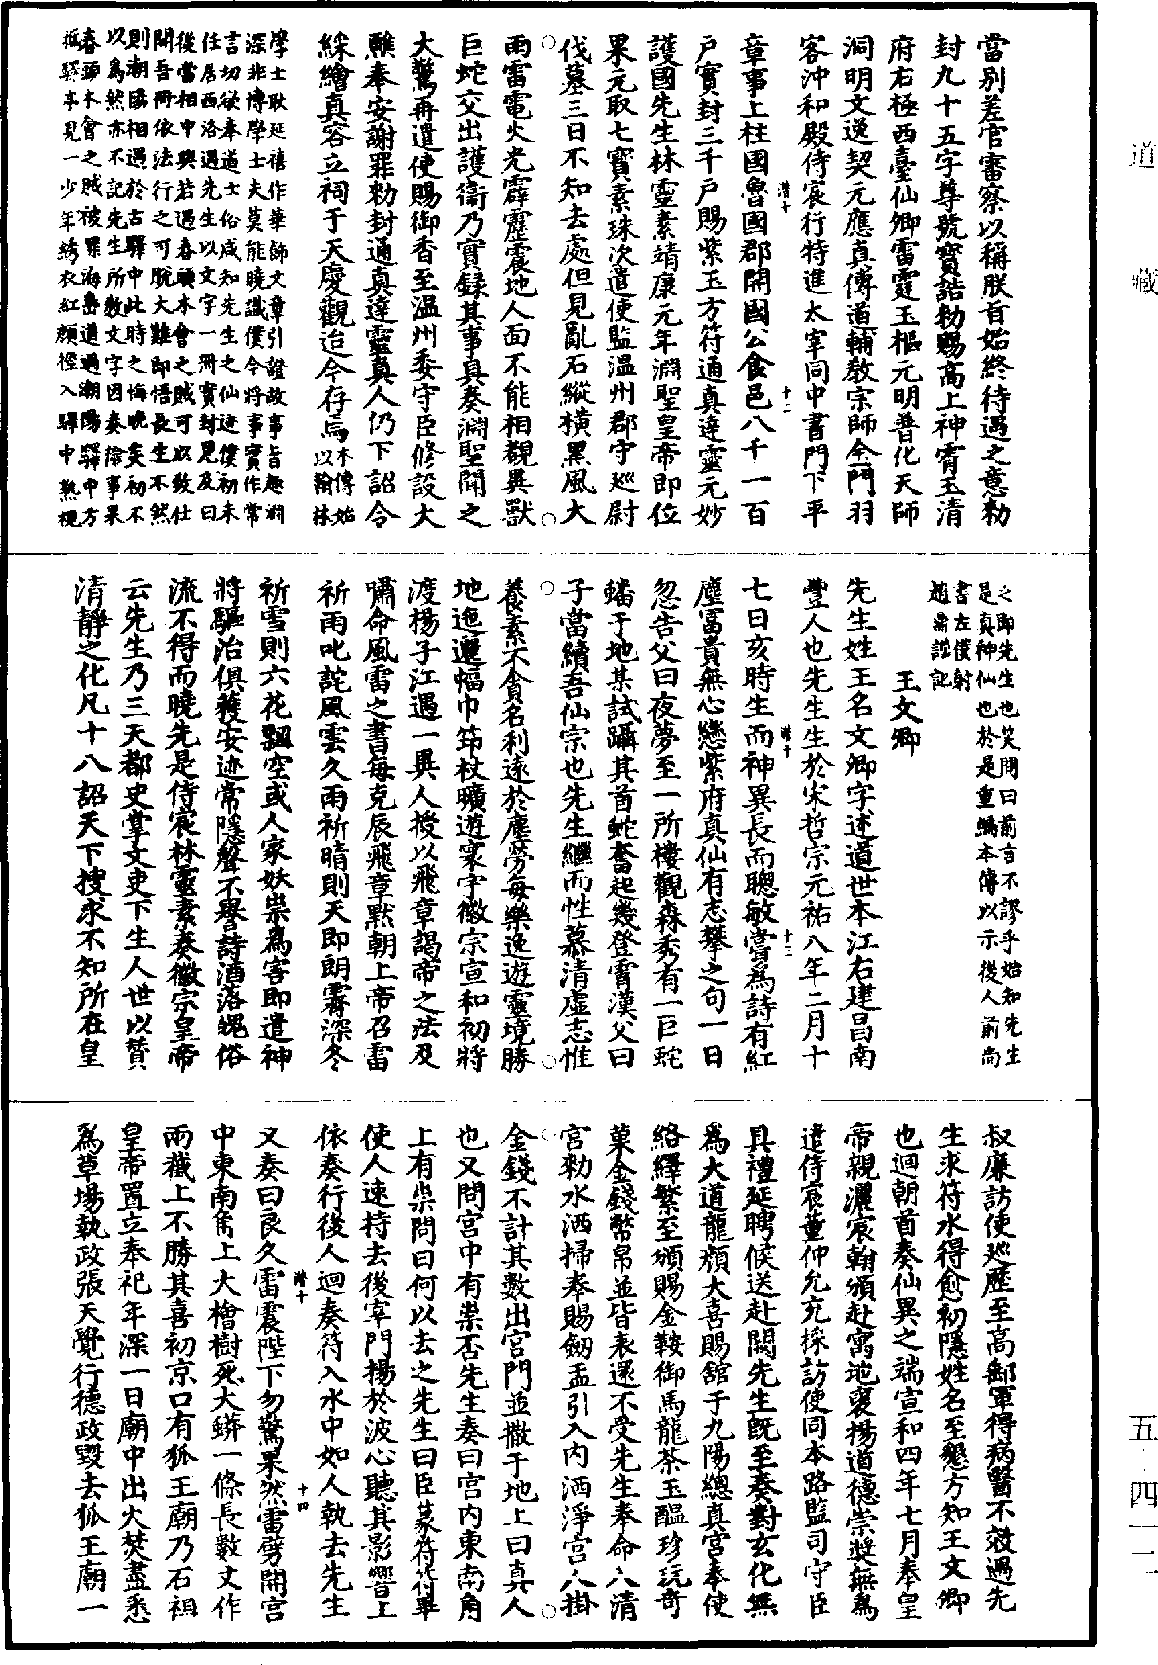 道藏
當別差官審察以稱朕旨始終待遇之意勑
封九十五字尊號寶誥勑賜高上神霄玉清
府右極西臺仙卿雷霆玉樞元明普化天師
洞明文逸契元應真傳道輔教宗師金門羽
客沖和殿侍宸行特進太宰同中書門下平
章事上柱國魯國郡開國公食邑八千一百
户實封三千户賜紫玉方符通真達靈元妙
護國先生林靈素靖康元年淵聖皇帝即位
果元取七寶素珠次遣使監温州郡守巡尉
伐墓三日不知去處但見亂石縱橫黑風大
雨雷電火光霹靂震地人面不能相觀異獸
巨蛇交出護衛乃實録其事具奏淵聖聞之
大驚再遣使賜御香至温州委守臣修設大
醮奉安謝罪勑封通真達靈真人仍下詔令
綵繪真容立祠于天慶觀迨今存焉本傳始以翰林
學士耿延禧作華師文章引證故事旨趣淵
深非博學士夫莫能曉識僕今將事實作常
言切欲奉道士俗咸知先生之仙迹僕初未
任居西洛遇先生以文字一冊實封見及曰
後當相中興若遇春頭木會之賊可以致仕
開吾冊依法行之可脫大難即悟長生不然
則潮陽相遇於古驛中此時之悔晚矣初不
以為然亦不記先生所教文字因奏檜事果
春頭木會之賊被罪海島道過潮陽驛中方
抵驛亭見一少年綉衣紅顏徑入驛中熟視
之即先生也笑問曰前言不謬乎始知先生
是真神仙也於是重編本傳以示後人前尚
書左僕射
趙鼎謹記
王文卿
先生姓王名文卿字述道世本江右建昌南
豐人也先生生於宋哲宗元祐八年二月十
七日亥時生而神異長而聰敏嘗為詩有紅
塵富貴無心戀紫府真仙有志攀之句一日
忽告父曰夜夢至一所樓觀森秀有一巨蛇
蟠于地某試躡其首蛇奮起幾登霄漢父曰
子當續吾仙宗也先生繼而性慕清虛志惟
養素不貪名利遠於塵勞每樂逸遊靈境勝
地迤邐幅巾笻杖曠遊寰宇徽宗宣和初將
渡楊子江遇一異人授以飛章謁帝之法及
嘯命風雷之書每克辰飛章默朝上帝召雷
祈雨叱詫風雲久雨祈晴則天即朗霽深冬
祈雪則六花飄空或人家妖祟為害即遣神
將驅治俱獲安迹常隱聲不譽詩酒落魄俗
流不得而曉先是侍宸林靈素奏徽宗皇帝
云先生乃三天都史掌文吏下生人世以贊
清靜之化凡十八詔天下搜求不知所在皇
叔廉訪使巡歷至高郵軍得病醫不效遇先
生求符水得愈初隱姓名至懇方知王文卿
也迴朝首奏仙異之端宣和四年七月奉皇
帝親灑宸翰頒赴寓地褒揚道德崇奬無為
遣侍宸董仲允充採訪使同本路監司守臣
具禮延聘候送赴闕先生既至奏對玄化無
為大道龍顏大喜賜舘于九陽總真宮奉使
絡繹繁至頒賜金鞍御馬龍茶玉醖珍玩奇
菓金錢幣帛並皆表還不受先生奉命入清
宮勑水洒掃奉賜劔盂引入內洒淨宮人掛
金錢不計其數出宮門並撒于地上曰真人
也又問宮中有祟否先生奏曰宮內東南角
上有祟問曰何以去之先生曰臣篆符符畢
使人速持去後宰門揚於波心聽其影響上
依奏行後人迴奏符入水中如人執去先生
又奏曰良久雷震陛下勿驚果然雷劈開宮
中東南舊上大檜樹死大蟒一條長數丈作
兩截上不勝其喜初京口有狐王廟乃石祖
皇帝置立奉祀年深一日廟中出火焚盡悉
為草場執政張天覺行德政毀去狐王廟一
潛十
十二
潛十
十三
潛十
十四
五-四一二